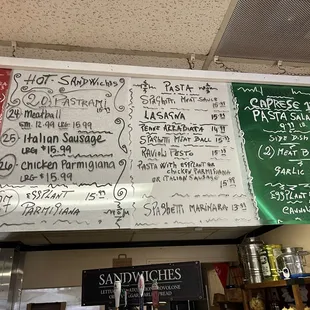 Hot Sandwiches
(20) Pastrami
24 Meatball
sm. 12.99 LRG 15.99
25 Italian Sausage
LRG $15.99
26 Chicken Parmigiana
LRG $15.99
Eggplant 15.99
Parmigiana
Pasta
Spaghetti Meat Sauce 15.99
Lasagna 15.99
Penne Arrabiata 15.99
Spaghetti Meat Ball 15.99
Ravioli Pesto 15.99
Pasta with Eggplant or
Chicken Parmigiana
or Italian Sausage 15.99
Spaghetti Marinara
Caprese
Pasta Sala
Side Dish
Meat B
Garlic
Eggplant
SANDWICHES